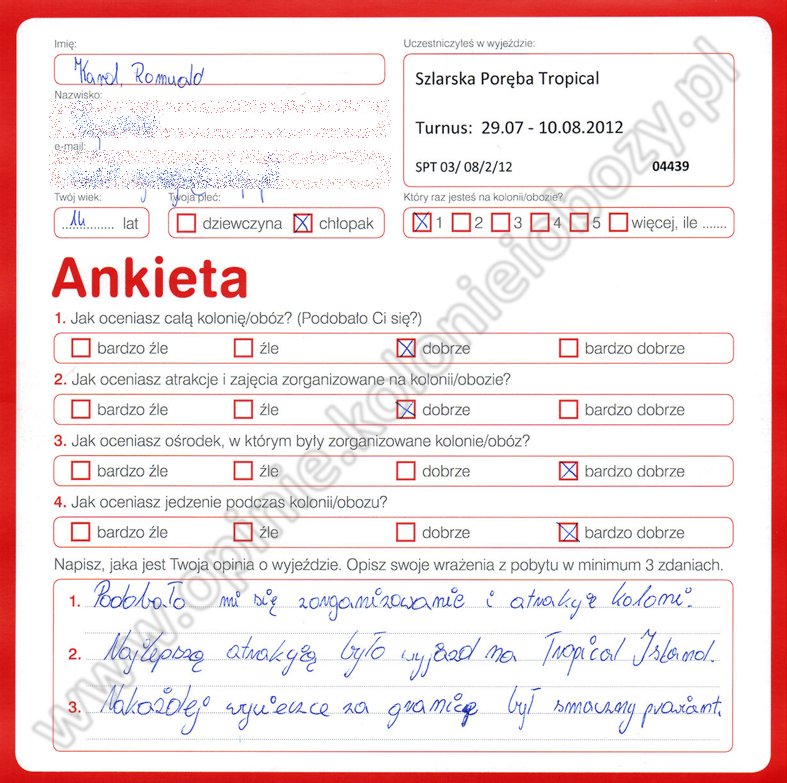 Imię:
Uczestniczyłeś w wyjeździe:
Karol, Romuald
Szlarska Poręba Tropical
Nazwisko:
Turnus: 29.07 - 10.08.2012
e-mail:
SPT 03/ 08/2/12 04439
Twój wiek: Twoja płeć: Który raz jesteś na kolonii/obozie?
14 lat dziewczyna chłopak 1 2 3 4 5 więcej, ile .......
Ankieta
1. Jak oceniasz całą kolonię/obóz? (Podobało Ci się?)
bardzo źle źle dobrze bardzo dobrze
2. Jak oceniasz atrakcje i zajęcia zorganizowane na kolonii/obozie?
bardzo źle źle dobrze bardzo dobrze
3. Jak oceniasz ośrodek, w którym były zorganizowane kolonie/obóz?
bardzo źle źle dobrze bardzo dobrze
4. Jak oceniasz jedzenie podczas kolonii/obozu?
bardzo źle źle dobrze bardzo dobrze
Napisz, jaka jest Twoja opinia o wyjeździe. Opisz swoje wrażenia z pobytu w minimum 3 zdaniach.
1. Podobało mi się zorganizowanie i atrakyje koloni.
2. Najlepszą atrakyżą było wyjazd na Tropical Island.
3. Nakażdej wycieczce za granicę był smaczny prowiant.
www.opinie.kolonieiobozy.pl